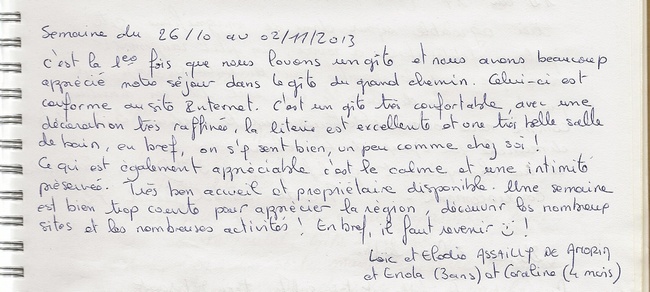 Semaine du 26/10 au 02/11/2013
C'est la 1ère fois que nous louons un gîte et nous avons beaucoup
apprécié notre séjour dans le gîte du grand chemin. Celui-ci est
conforme au site Internet. C'est un gîte très confortable, avec une
décoration très raffinée, la literie est excellente et une très belle salle
de bain, en bref, on s'y sent bien, un peu comme chez soi !
Ce qui est également appréciable c'est le calme et une intimité
préservée. Très bon accueil et propriétaire disponible. Une semaine
est bien trop courte pour apprécier la région, découvrir les nombreux
sites et les nombreuses activités ! En bref, il faut revenir ☺ !
Loïc et Elodie ASSAILLY DE AMORIN
et Enola (3ans) et Coraline (4 mois)